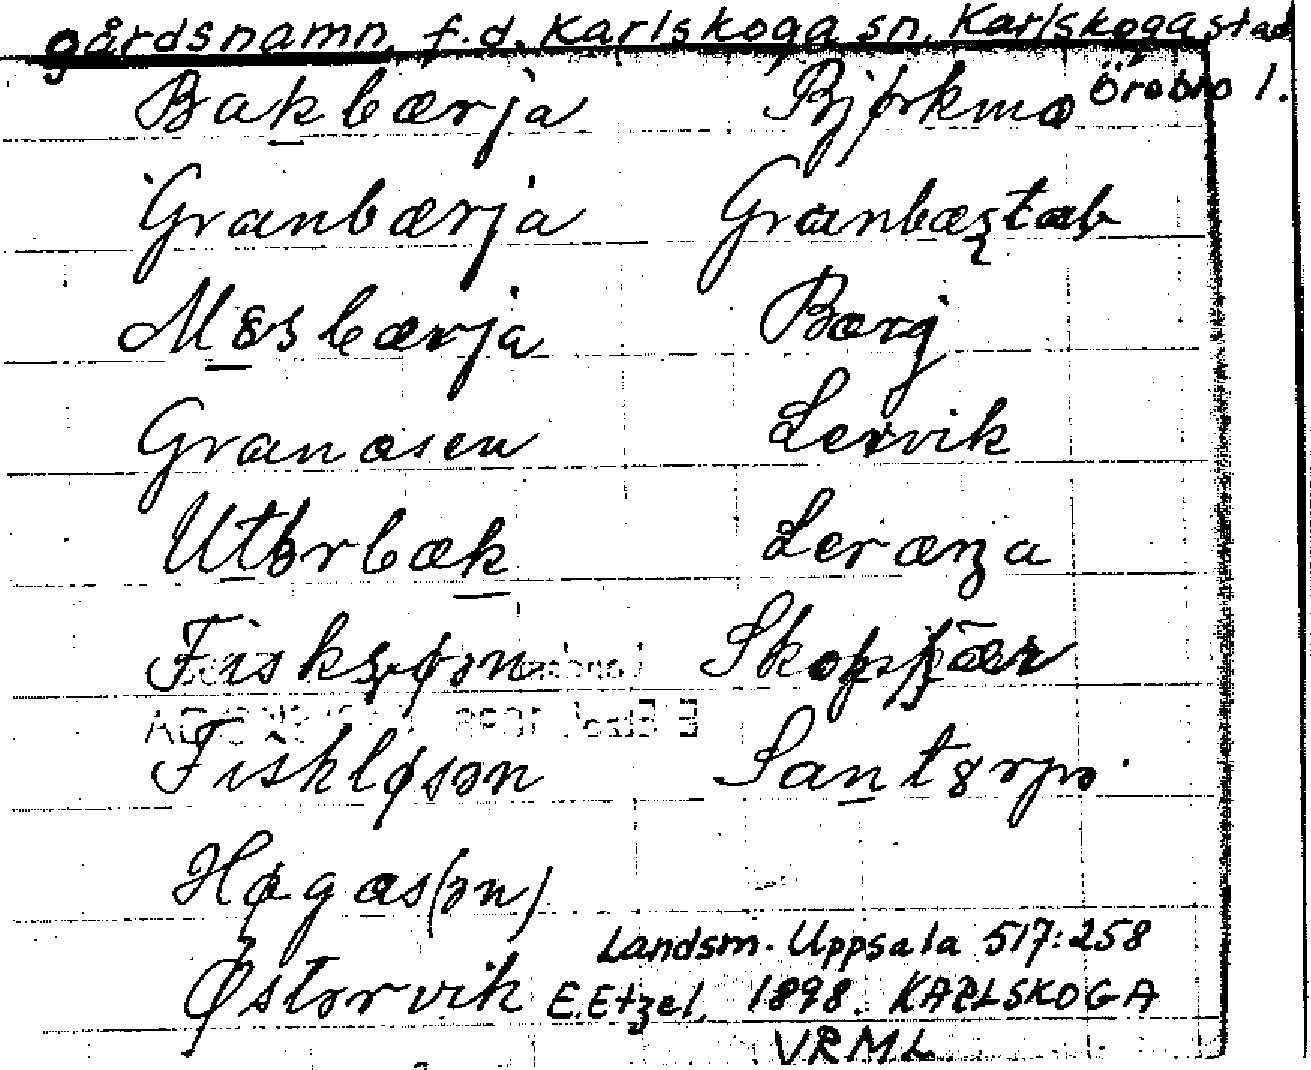 gårdsnamn, f.d. Karlskoga sn. Karlskoga stad
Örebro l.
Bakbærja Bjørkmo
Granbærja Granbæstab
M8sbærja Bærg
Granåsen Lervik
Utbrbæk Leræna
Fisksjøən Skopjær
Fiskløsən Sant8rp
Høgås(ən)
Østərvik
Landsm. Uppsala 517:258
E.Etzel 1898. KARLSKOGA
VRML